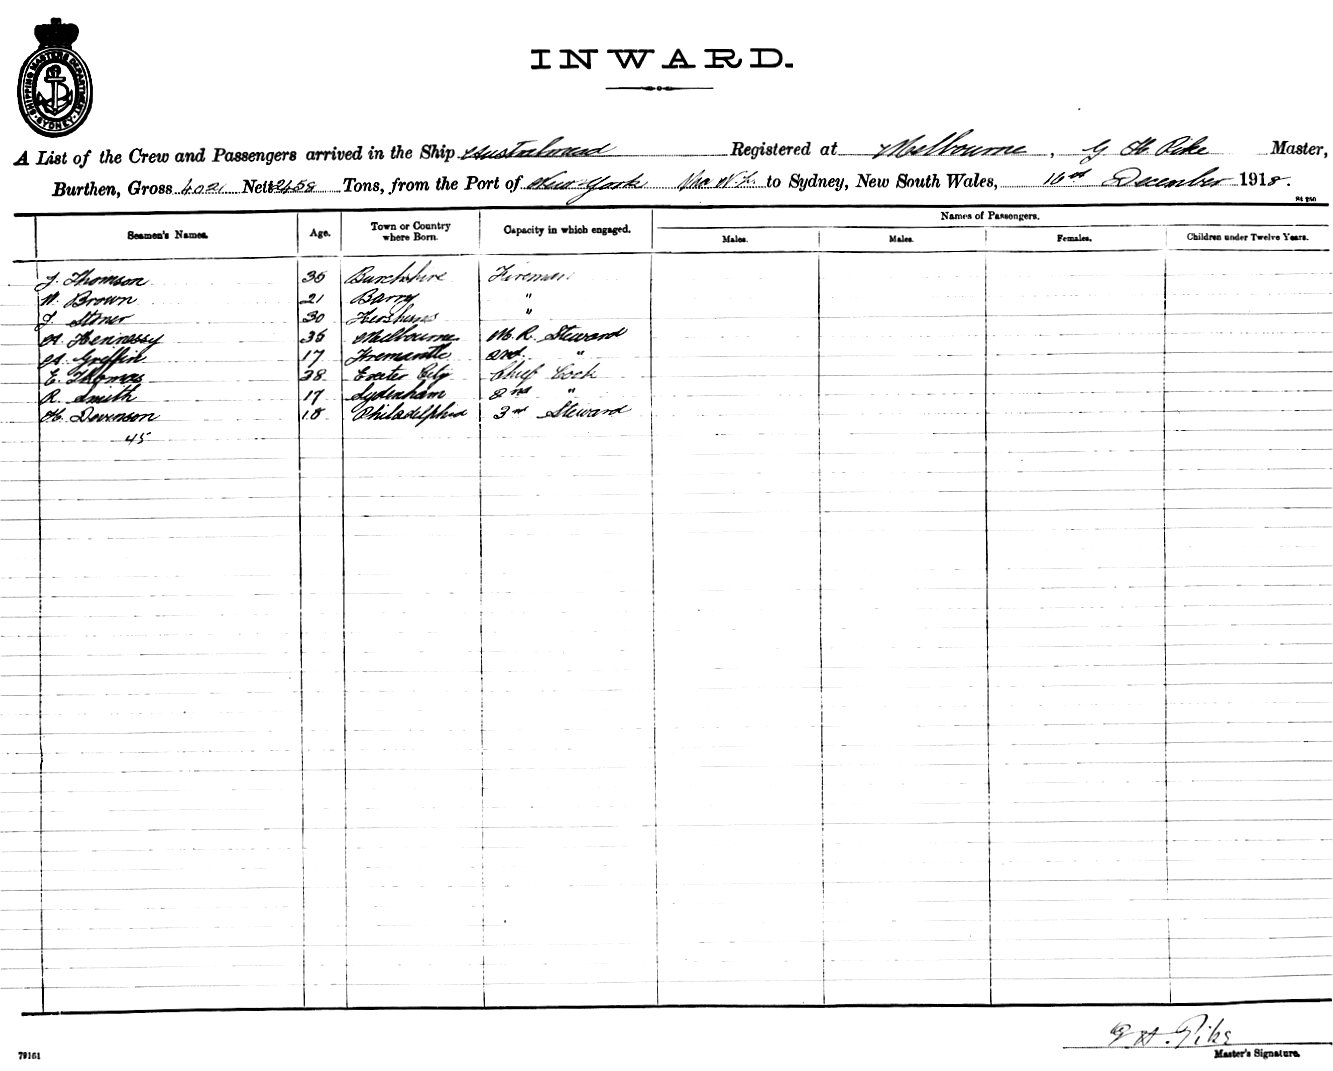 SHIPPING MASTERS DEPARTMENT SYDNEY
INWARD.
A List of the Crew and Passengers arrived in the Ship Australmead Registered at Melbourne, G H Pike Master,
Burthen, Gross 4021 Nett 2458 Tons, from the Port of New York via N.Z. to Sydney, New South Wales, 16th December 1918.
Seamen's Names. Age. Town or Country where Born. Capacity in which engaged. Names of Passengers.
Males. Males. Females. Children under Twelve Years.
J. Thomson 35 Fireman
W. Brown 21 Barry "
J Stoner 30 "
A. Hennessy 35 Melbourne M. R. Steward
A. Griffin 17 Fremantle 2nd "
E. Thomas 38 Exeter City Chief Cook
R. Smith 17 Sydenham 2nd "
H. Devenson 18 Philadelphia 3rd Steward
45
G H. Pike
79161 Master's Signature.